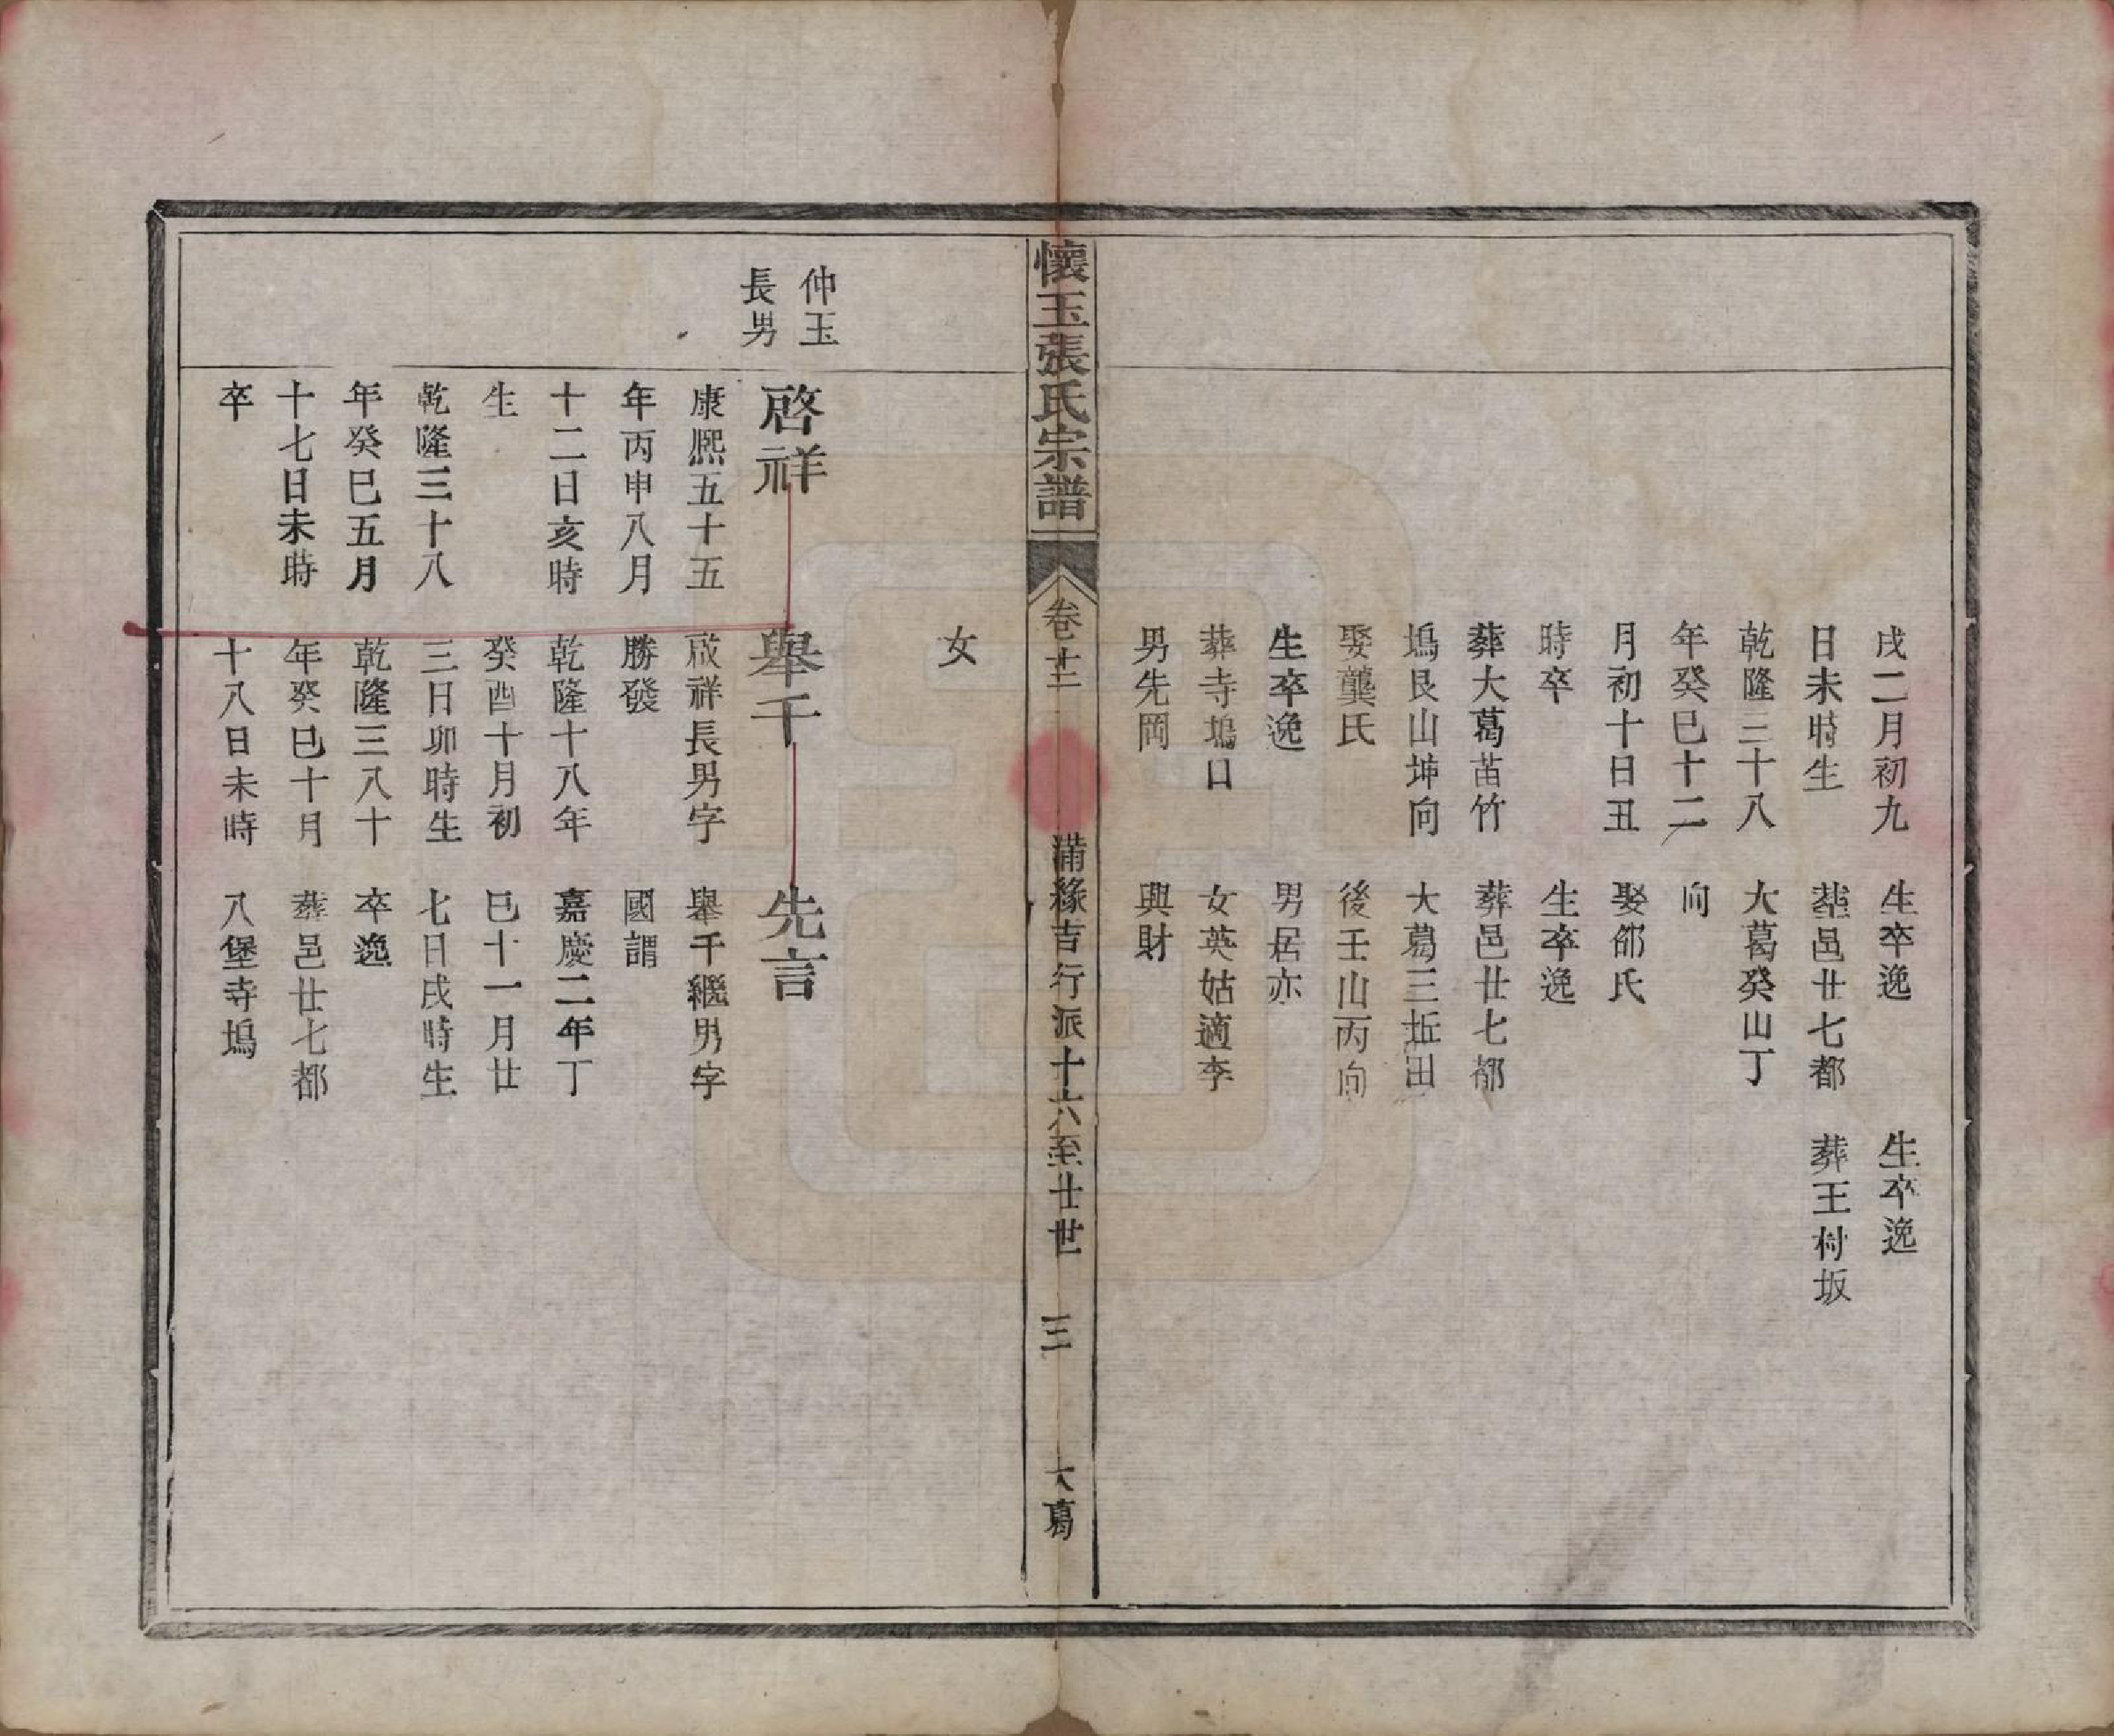 戌二月初九
日未時生
乾隆三十八
年癸巳十二
月初十日丑
時卒
葬大葛苗竹
塢艮山坤向
娶龔氏
生卒逸
葬寺塢口
男先岡
生卒逸
葬邑廿七都
大葛癸山丁
向
娶邰氏
生卒逸
葬邑廿七都
大葛三坵田
後壬山丙向
男居亦
女英姑適李
興財
生卒逸
葬王村坂
懷玉張氏宗譜
卷十二
滿緣吉行派十六至廿世
三
大葛
女
仲玉
長男
啓祥
康熙五十五
年丙申八月
十二日亥時
生
乾隆三十八
年癸巳五月
十七日未時
卒
舉千
啟祥長男字
勝發
乾隆十八年
癸酉十月初
三日卯時生
乾隆三八十
年癸巳十月
十八日未時
先言
舉千繼男字
國謂
嘉慶二年丁
巳十一月廿
七日戌時生
卒逸
葬邑廿七都
八堡寺塢